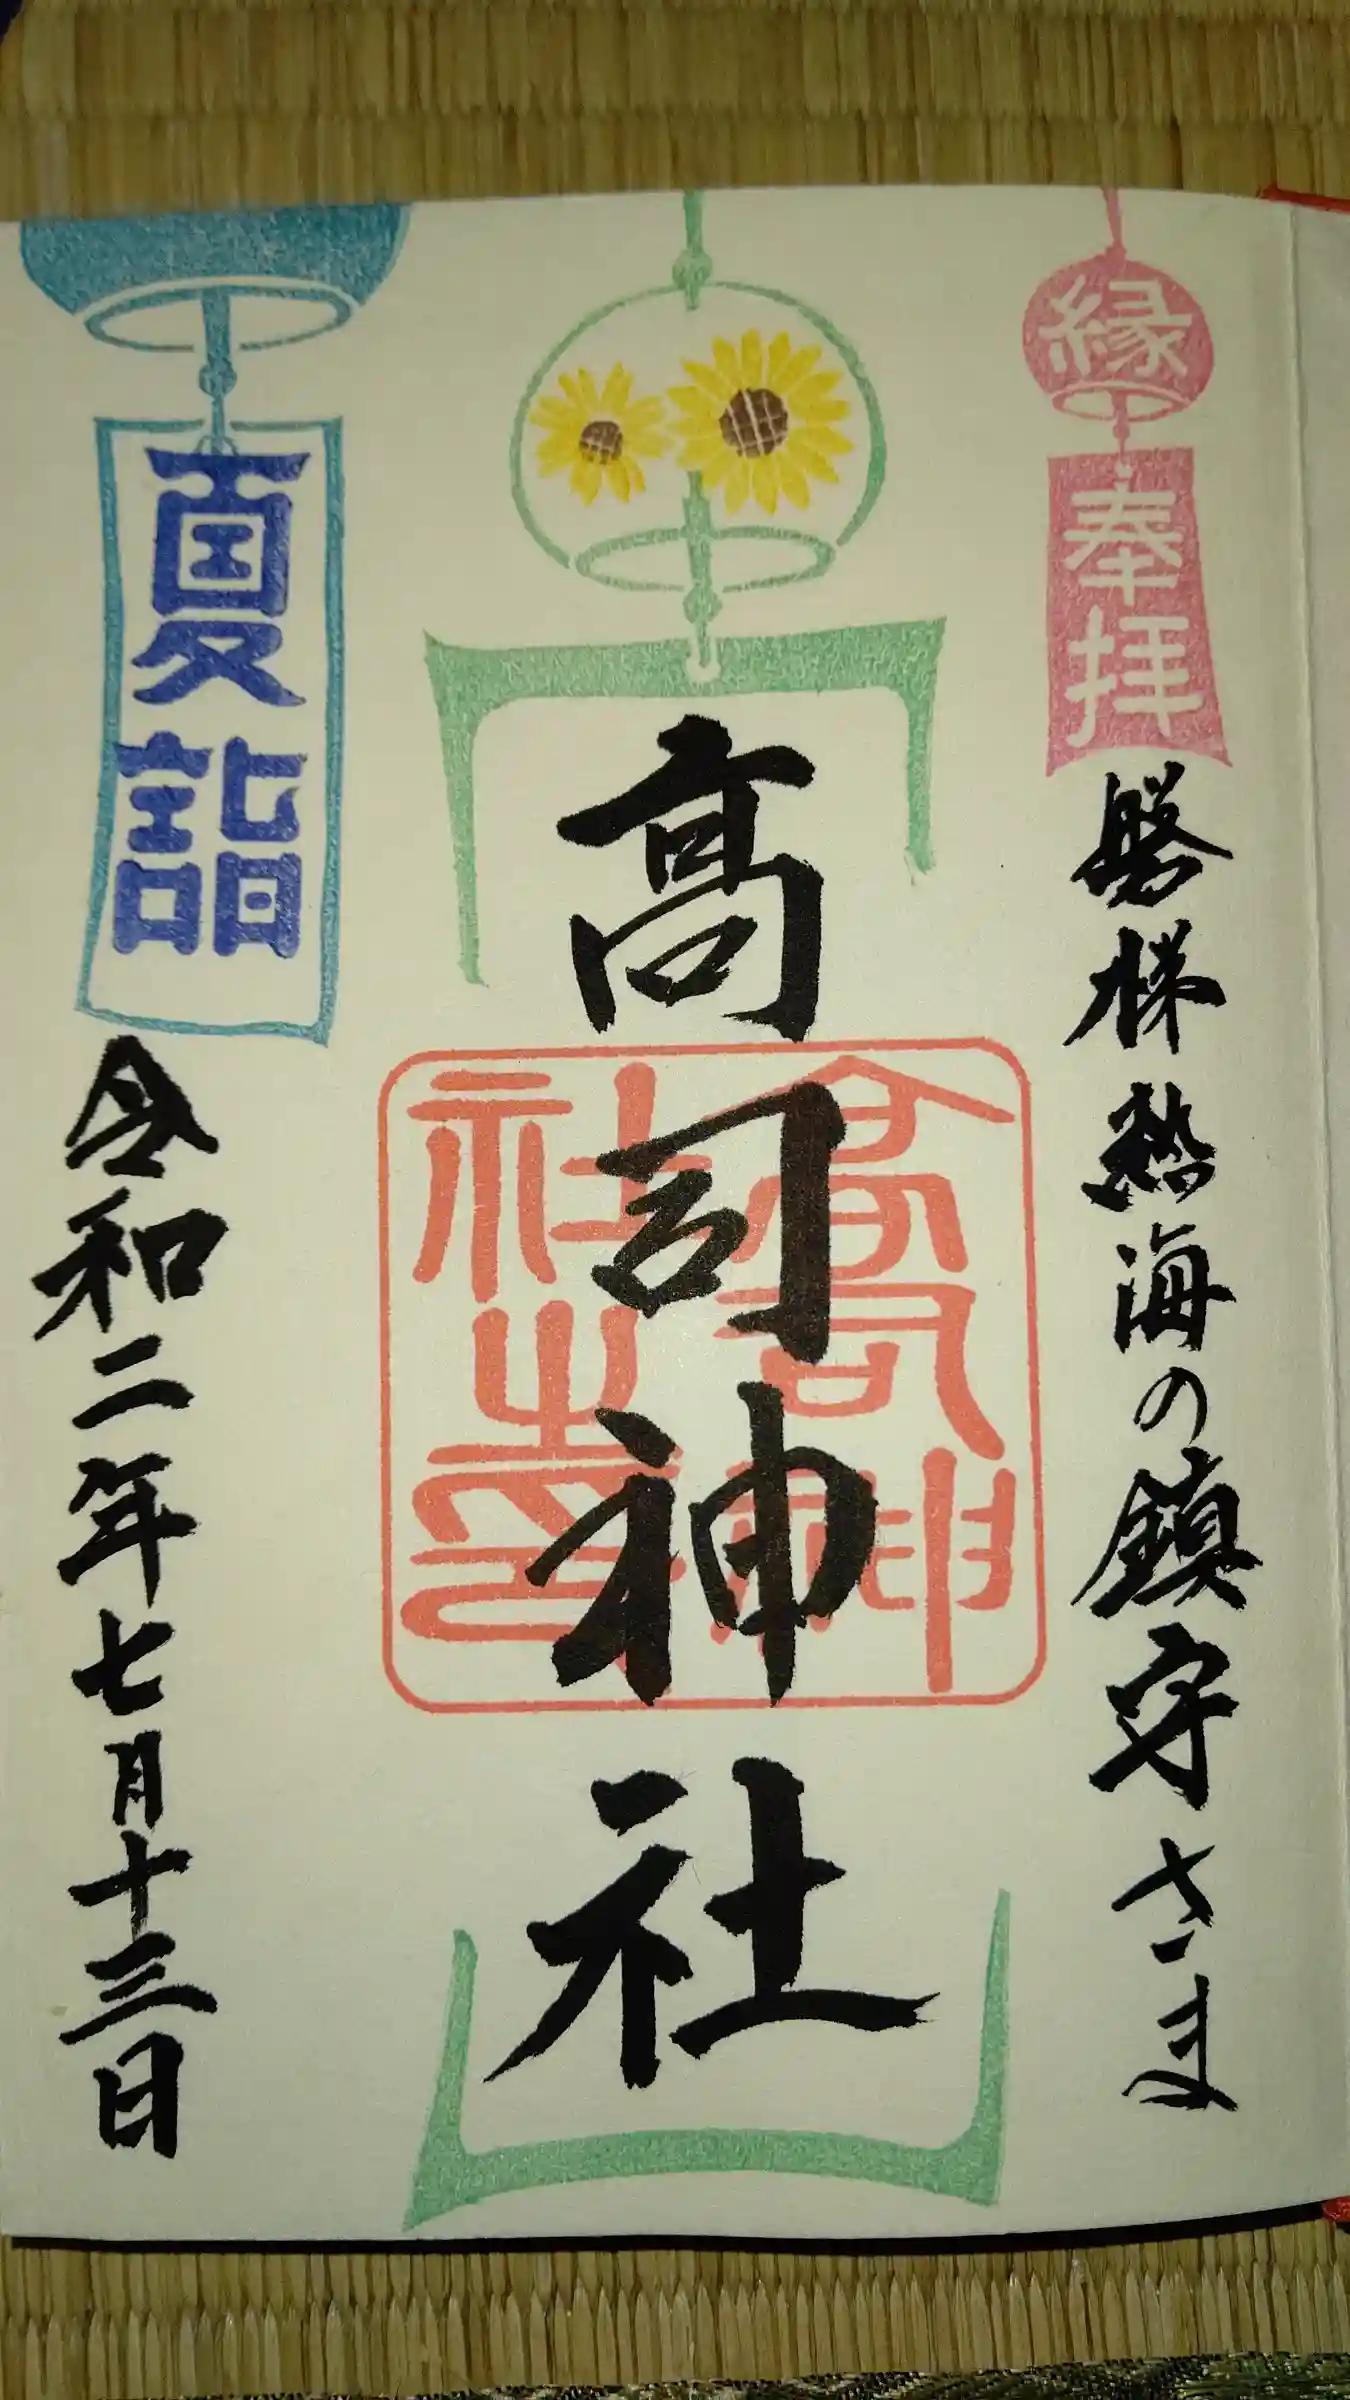 縁
奉拝
磐梯熱海の鎮守さま
高司神社
高司神社之印
夏詣
令和二年七月十三日